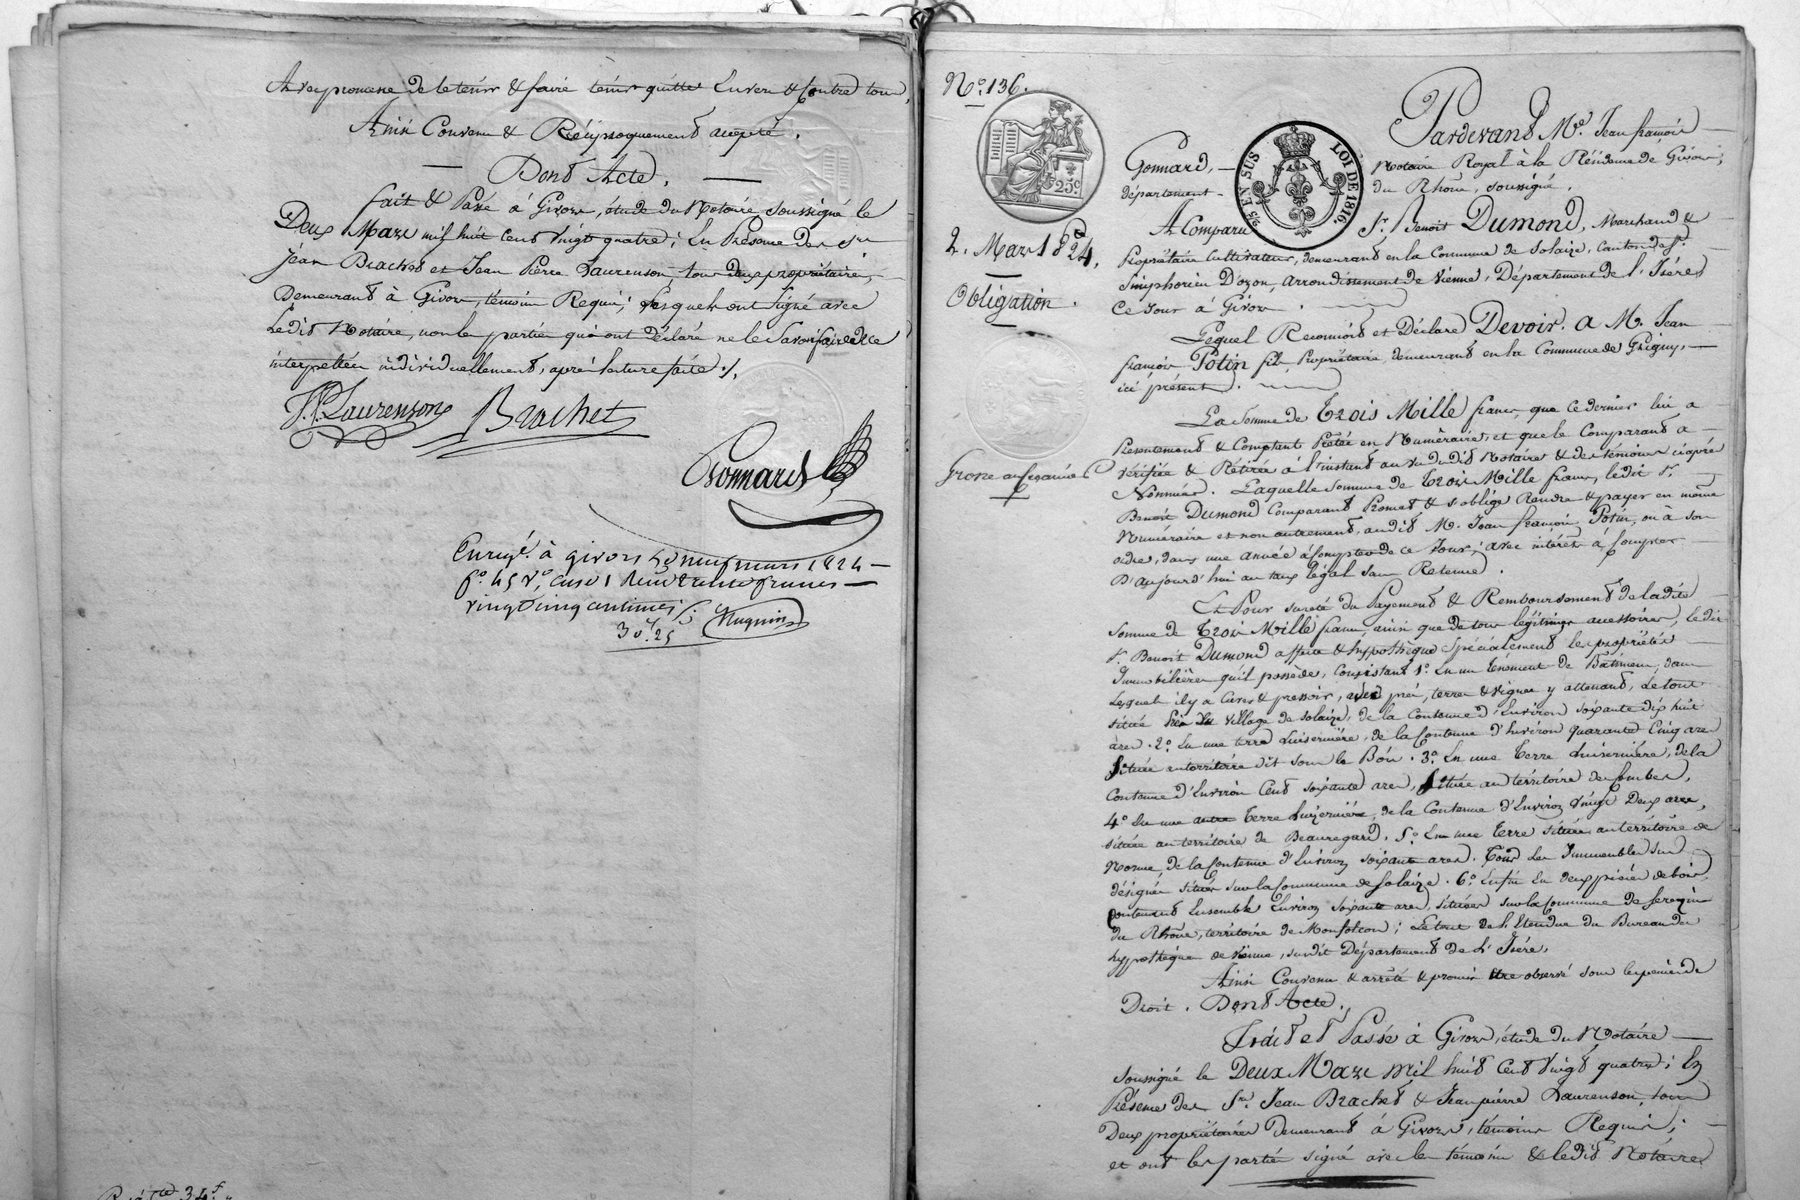 Avec promesse de le tenir & faire tenir quitte Envers & Contre tous,
Ainsi Convenu & Réciproquement accepté.
Dont Acte.
fait & Passé à Givors, étude du Notaire soussigné le
Deux Mars mil huit Cent Vingt quatre; En Présence des Srs
Jean Brachet et Jean Pierre Laurenson, tous deux propriétaires,
Demeurant à Givors, témoins Requis; Lesquels ont Signé avec
Ledit Notaire, non les parties qui ont déclaré ne le Savoir faire de ce
interpellées individuellement, après lecture faite ./.
J.P. Laurenson Brachet
Gonnard
Enregé. à Givors le neuf mars 1824
fo. 45 Vo. case 1 Reçu trente francs
vingt cinq centimes
30f. 25 Huguin
No. 136.
25c
2. Mars 1824.
Obligation.
Grosse au créancier
25 EN SUS LOI DE 1816.
Pardevant Me. Jean françois
Gonnard, Notaire Royal à la Résidence de Givors,
département du Rhône, soussigné.
A Comparu Sr. Benoit Dumond, Marchand &
Propriétaire Cultivateur, demeurant en la Commune de Solaize, Canton de St.
Simphorien D'ozon, Arrondissement de Vienne, Département de l'Isère,
Ce Jour à Givors.
Lequel Reconnoit et Déclare Devoir. A M. Jean
françois Potin fils Propriétaire demeurant en la Commune de Grigny,
ici présent.
La Somme de Trois Mille francs, que Ce dernier lui a
Présentement & Comptant Prêtée en Numéraire, et que le Comparant a
Vérifiée & Rétirée à l'instant au vu dudit Notaire & des témoins ci après
Nommés. Laquelle Somme de Trois Mille francs, ledit Sr.
Benoit Dumond Comparant Promet & s'oblige Rendre & payer en même
Numéraire et non autrement, audit M. Jean françois Potin, ou à son
ordre, dans une année à Compter de ce Jour; avec intérêts à Compter
D'aujourd'hui au taux légal sans Retenue.
Et Pour sureté du Payement & Remboursement de ladite
Somme de Trois Mille francs, ainsi que de tous légitimes accessoires, ledit
Sr. Benoit Dumond affecte & hypothèque Spécialement les propriétés
Immobilières qu'il possède, Consistant 1o. En un Ténement de Bâtiment, dans
Lesquels il y a Cuves & pressoir, avec prés, terres & vignes y attenant, Le tout
situé Près du Village de Solaize, de la Contenue d'Environ soixante dix huit
ares. 2o. En une terre Luisernière, de la Contenue d'Environ quarante Cinq ares
Située au territoire dit sous le Bois. 3o. En une Terre Luisernière, de la
Contenue d'Environ Cent soixante ares, Située au territoire des Combes,
4o En une autre Terre Luizernière, de la Contenue d'Environ Vingt Deux ares,
située au territoire de Beauregard. 5o. En une Terre située au territoire de
de la Contenue d'Environ soixante ares. Tous les Immeubles sus
désignés situés sur la Commune de Solaize. 6o. Enfin En deux pièces de bois,
Contenant Ensemble Environ soixante ares, situées sur la Commune de Serezin
du Rhône, territoire de Monfolcon; Le tout de l'Etendue du Bureau des
hypothèques de Vienne, susdit Département de L'Isère.
Ainsi Convenu & arrêté & promis être observé sous les peines de
Droit. Dont Acte.
Fait et Passé à Givors, étude du Notaire
Soussigné le Deux Mars mil huit Cent Vingt quatre; En
Présence des Srs. Jean Brachet & Jean pierre Laurenson, tous
Deux propriétaires Demeurant à Givors, témoins Requis;
et ont les parties signé avec les témoins & ledit Notaire